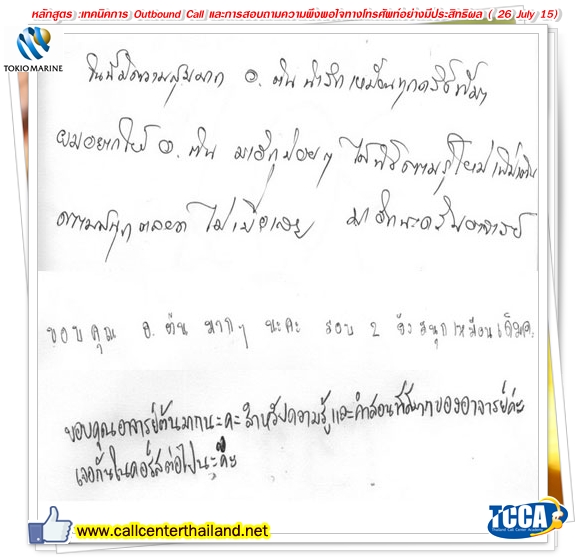 หลักสูตร :เทคนิคการ Outbound Call และการสอบถามความพึงพอใจทางโทรศัพท์อย่างมีประสิทธิผล ( 26 July 15)
TOKIO MARINE
วันนี้มีความสุขมาก อ. ต้น น่ารักเหมือนทุกครั้ง
ผมอยากให้ อ. ต้น มาอีกบ่อยๆ ได้ทั้งความรู้ใหม่ เพิ่มเติม
ความสนุก ตลอด ไม่เบื่อเลย มาอีกนะครับอาจารย์
ขอบคุณ อ. ต้น มากๆ นะคะ รอบ 2 ยังสนุกเหมือนเดิมค่ะ
ขอบคุณอาจารย์ต้นมากนะคะสำหรับความรู้และคำสอนที่ดีมากของอาจารย์ค่ะ
เจอกันในคอร์สต่อไปนะคะ
www.callcenterthailand.net
TCCA
Thailand Call Center Academy